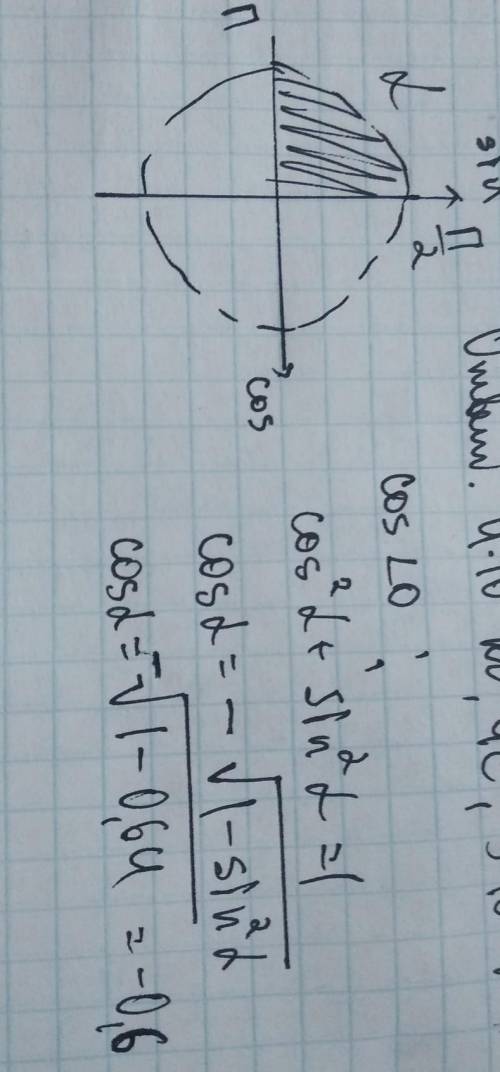 sin
П/2
α
П
cos
cos < 0
cos²α + sin²α = 1
cosα = - √1 - sin²α
cosα = -√1 - 0,64 = -0,6